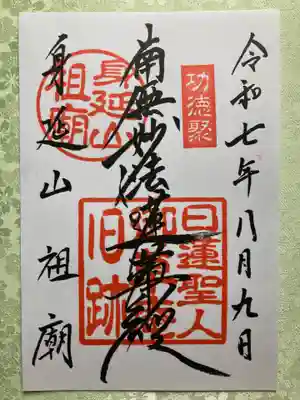 令和七年八月九日
功徳聚
南無妙法蓮華經
日蓮聖人
旧跡
身延山
祖廟
身延山祖廟